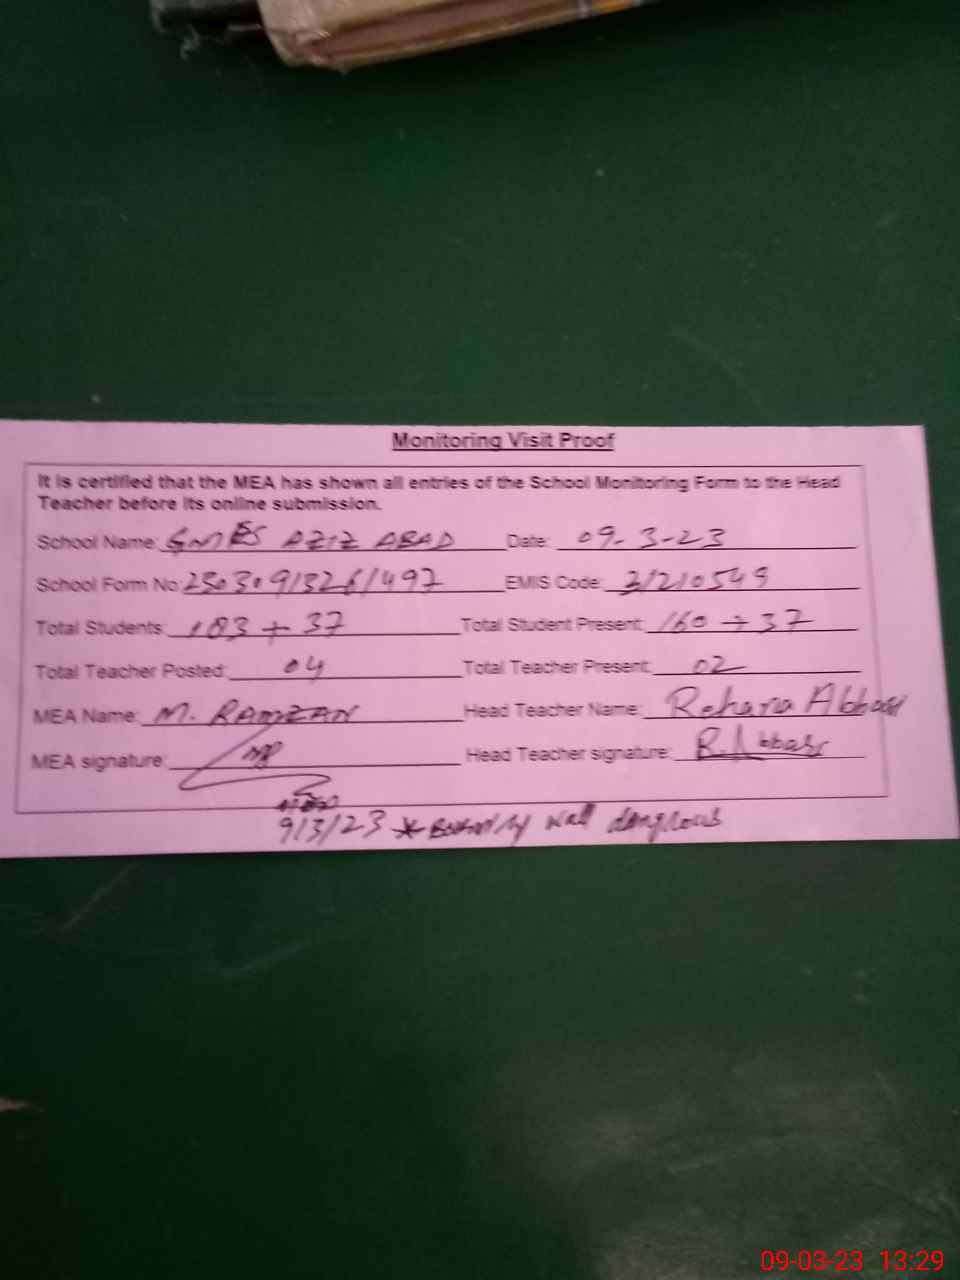 Monitoring Visit Proof
It is certified that the MEA has shown all entries of the School Monitoring Form to the Head
Teacher before its online submission.
School Name: GMES AZIZ ABAD Date: 09-3-23
School Form No: 2303091326/497 EMIS Code: 31210549
Total Students: 183 + 37 Total Student Present: 160 + 37
Total Teacher Posted: 04 Total Teacher Present: 02
MEA Name: M. RAMZAN Head Teacher Name: Rehana Abbasi
MEA signature: Head Teacher signature: R. Abbasi
9/3/23 * wall dangrous
09-03-23 13:29